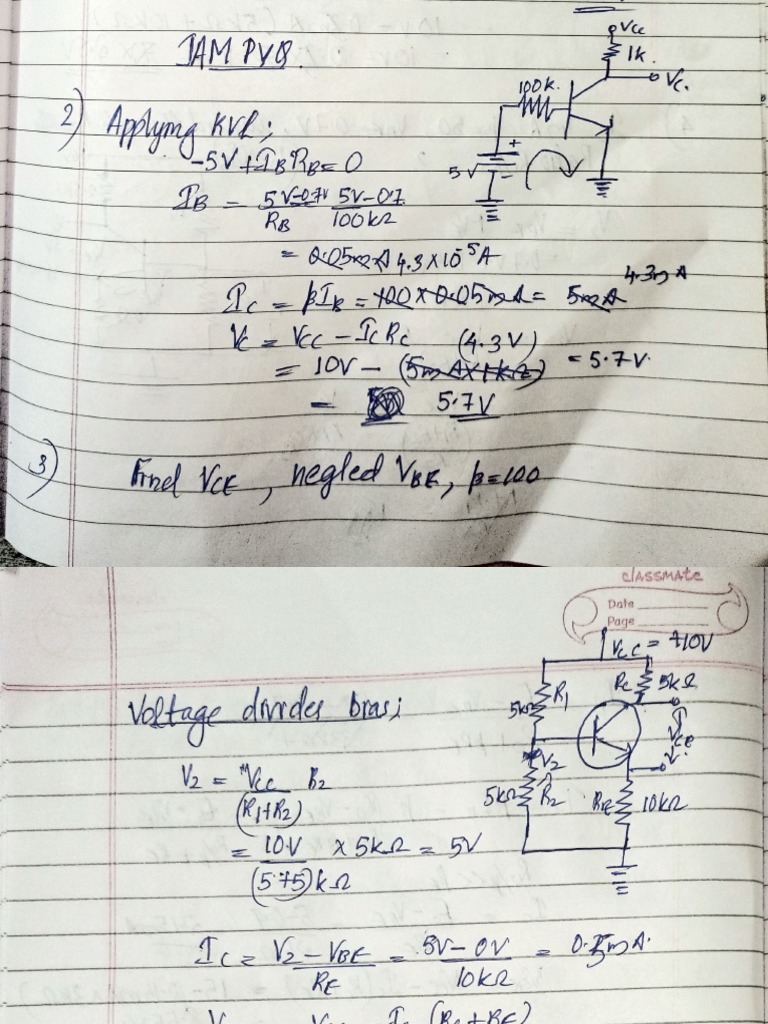 JAM PYQ
VCC
1k.
VC.
100k.
5V
+
-
2) Applying KVL;
-5V+IBRB=0
IB = 5V-0.7V/RB 5V-0.7/100kΩ
= 0.05mA 4.3×10⁻⁵A
4.3mA
IC = βIB = 100×0.05mA = 5mA
VC = VCC - ICRC (4.3V)
= 10V - (5mA×1kΩ) = 5.7V.
= 5.7V
3) Find VCE, neglect VBE, β=100
classmate
Date
Page
VCC = +10V
Voltage divider bias;
R1
5kΩ
RC
5kΩ
VCE
V2
5kΩ
R2
RE
10kΩ
V2 = VCC/(R1+R2) R2
= 10V/(5+5)kΩ × 5kΩ = 5V
IC = V2-VBE/RE = 5V-0V/10kΩ = 0.5mA.